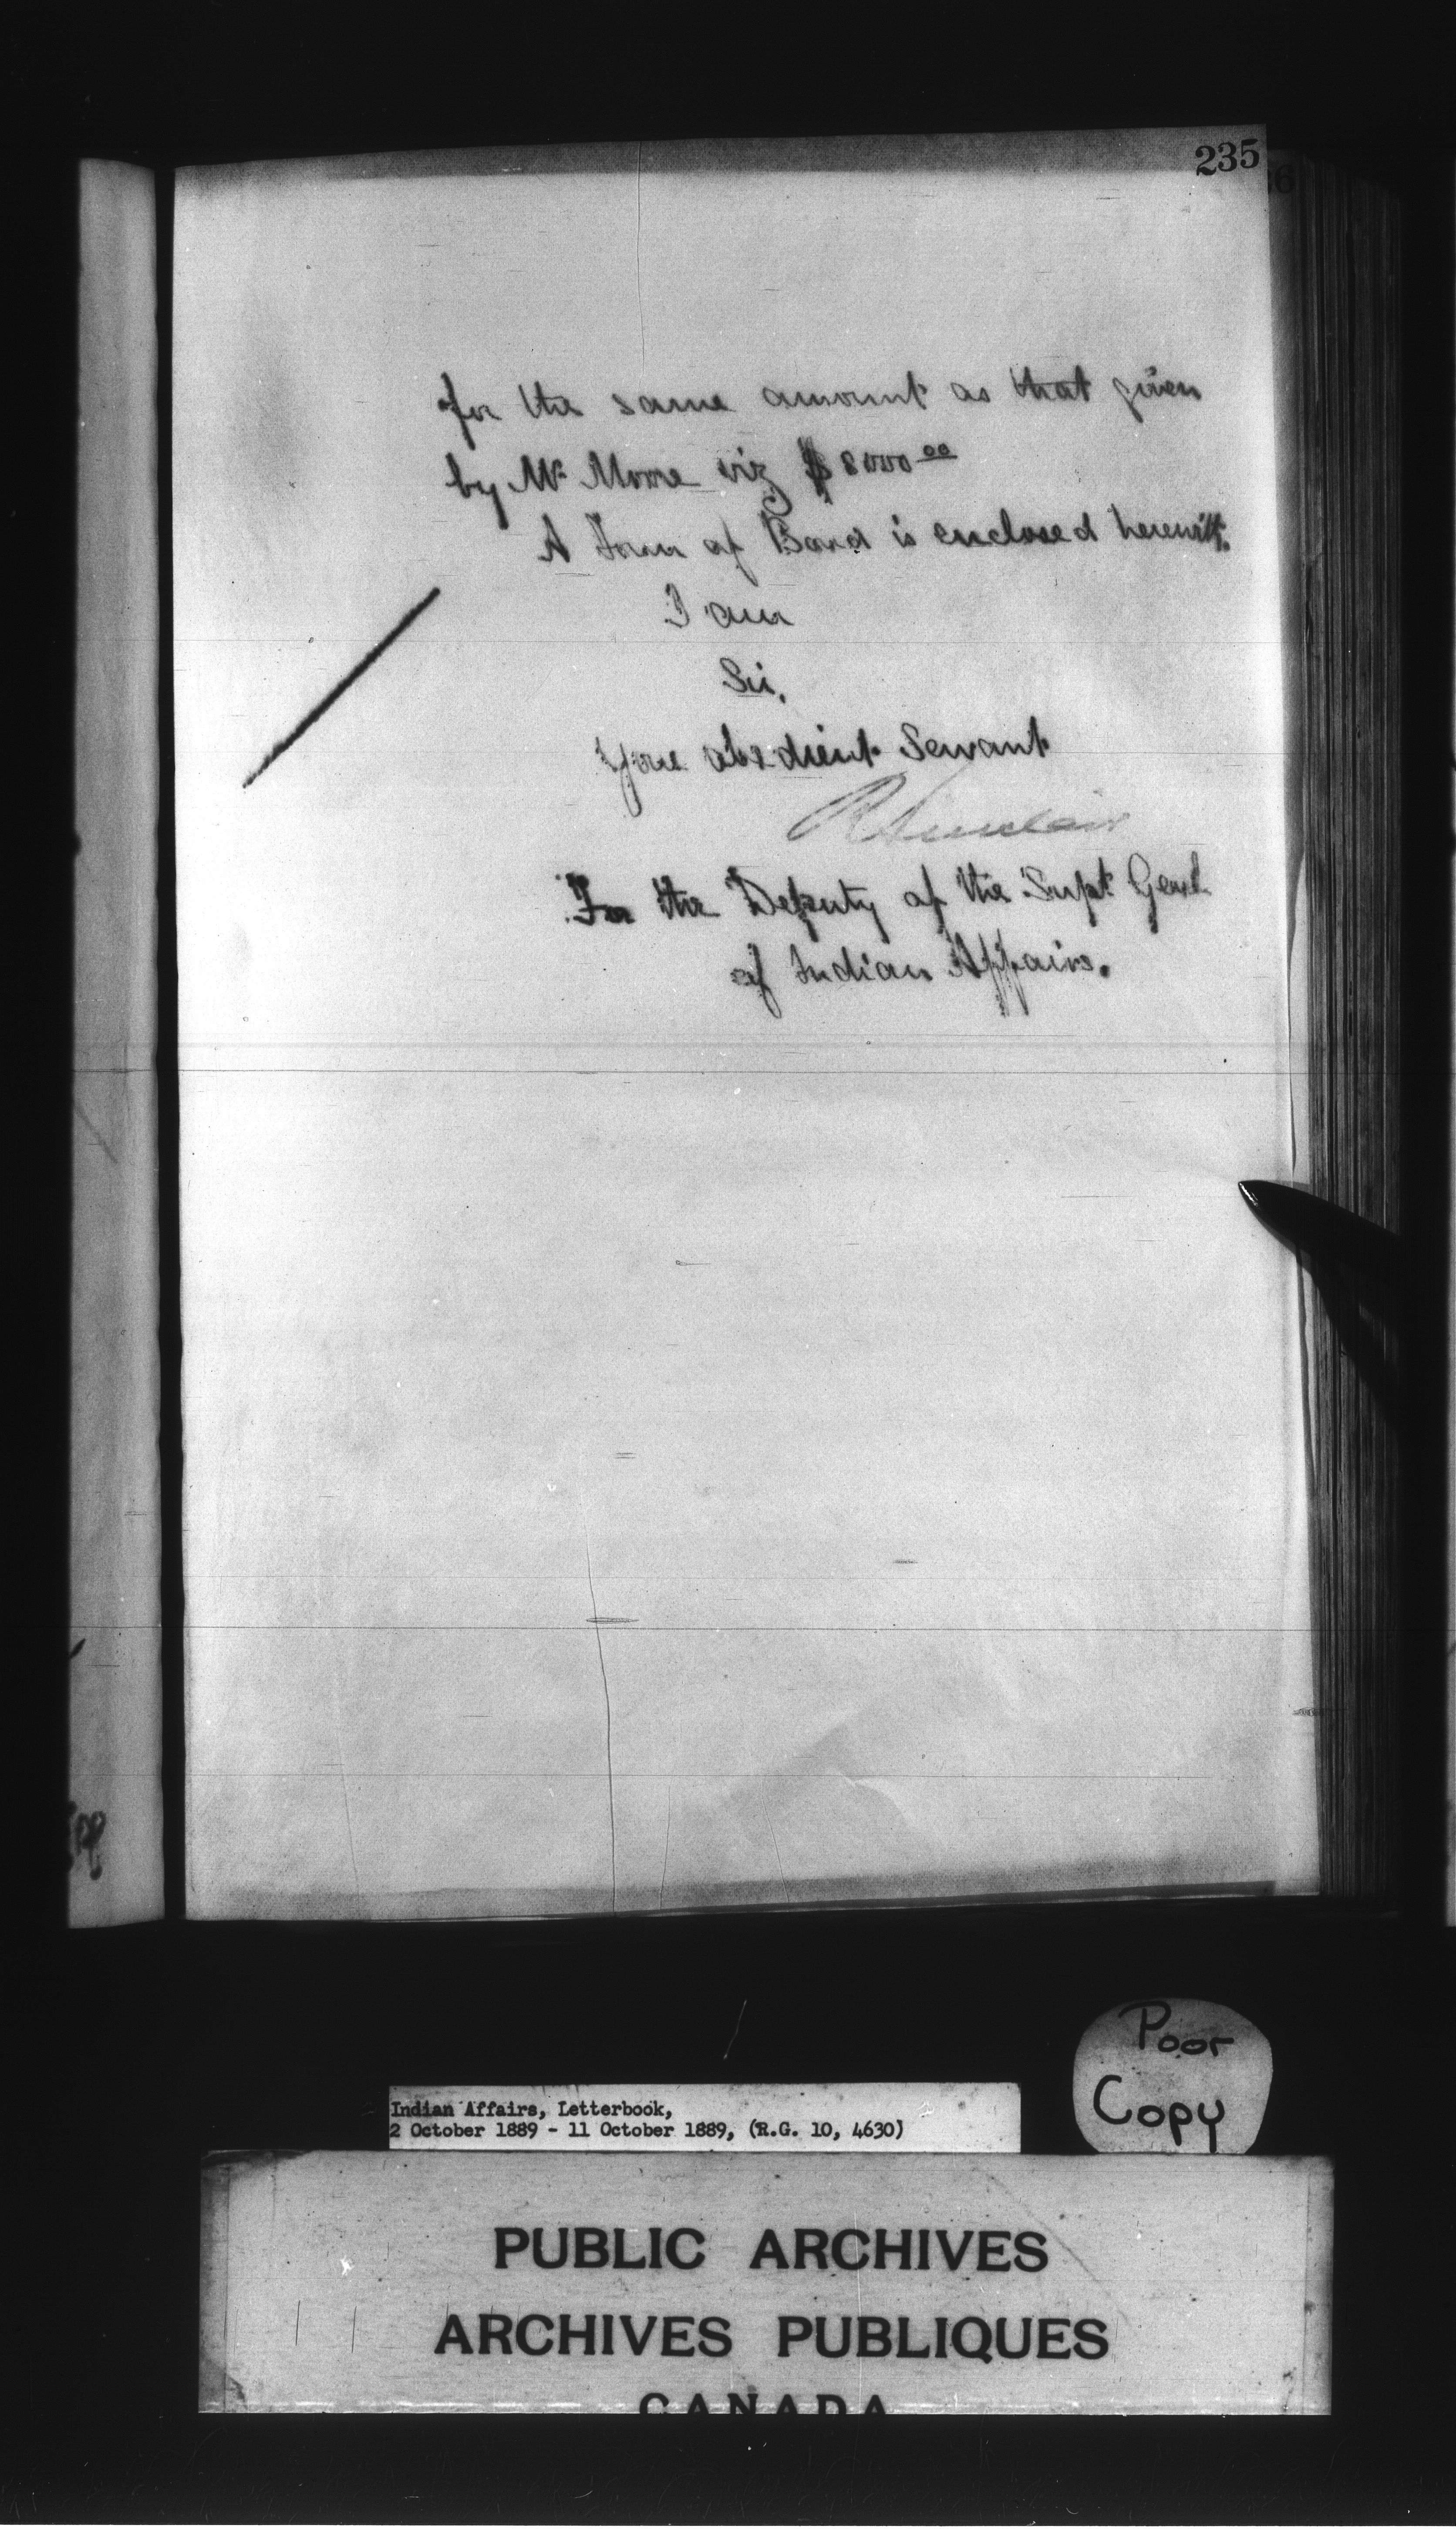 235
for the same amount as that given
by Mr. Moore viz $8000.00
A Form of Bond is enclosed herewith.
I am
Sir,
Your obedient Servant
R Sinclair
For the Deputy of the Supt Genl
of Indian Affairs.
Poor
Copy
Indian Affairs, Letterbook,
2 October 1889 - 11 October 1889, (R.G. 10, 4630)
PUBLIC ARCHIVES
ARCHIVES PUBLIQUES
CANADA